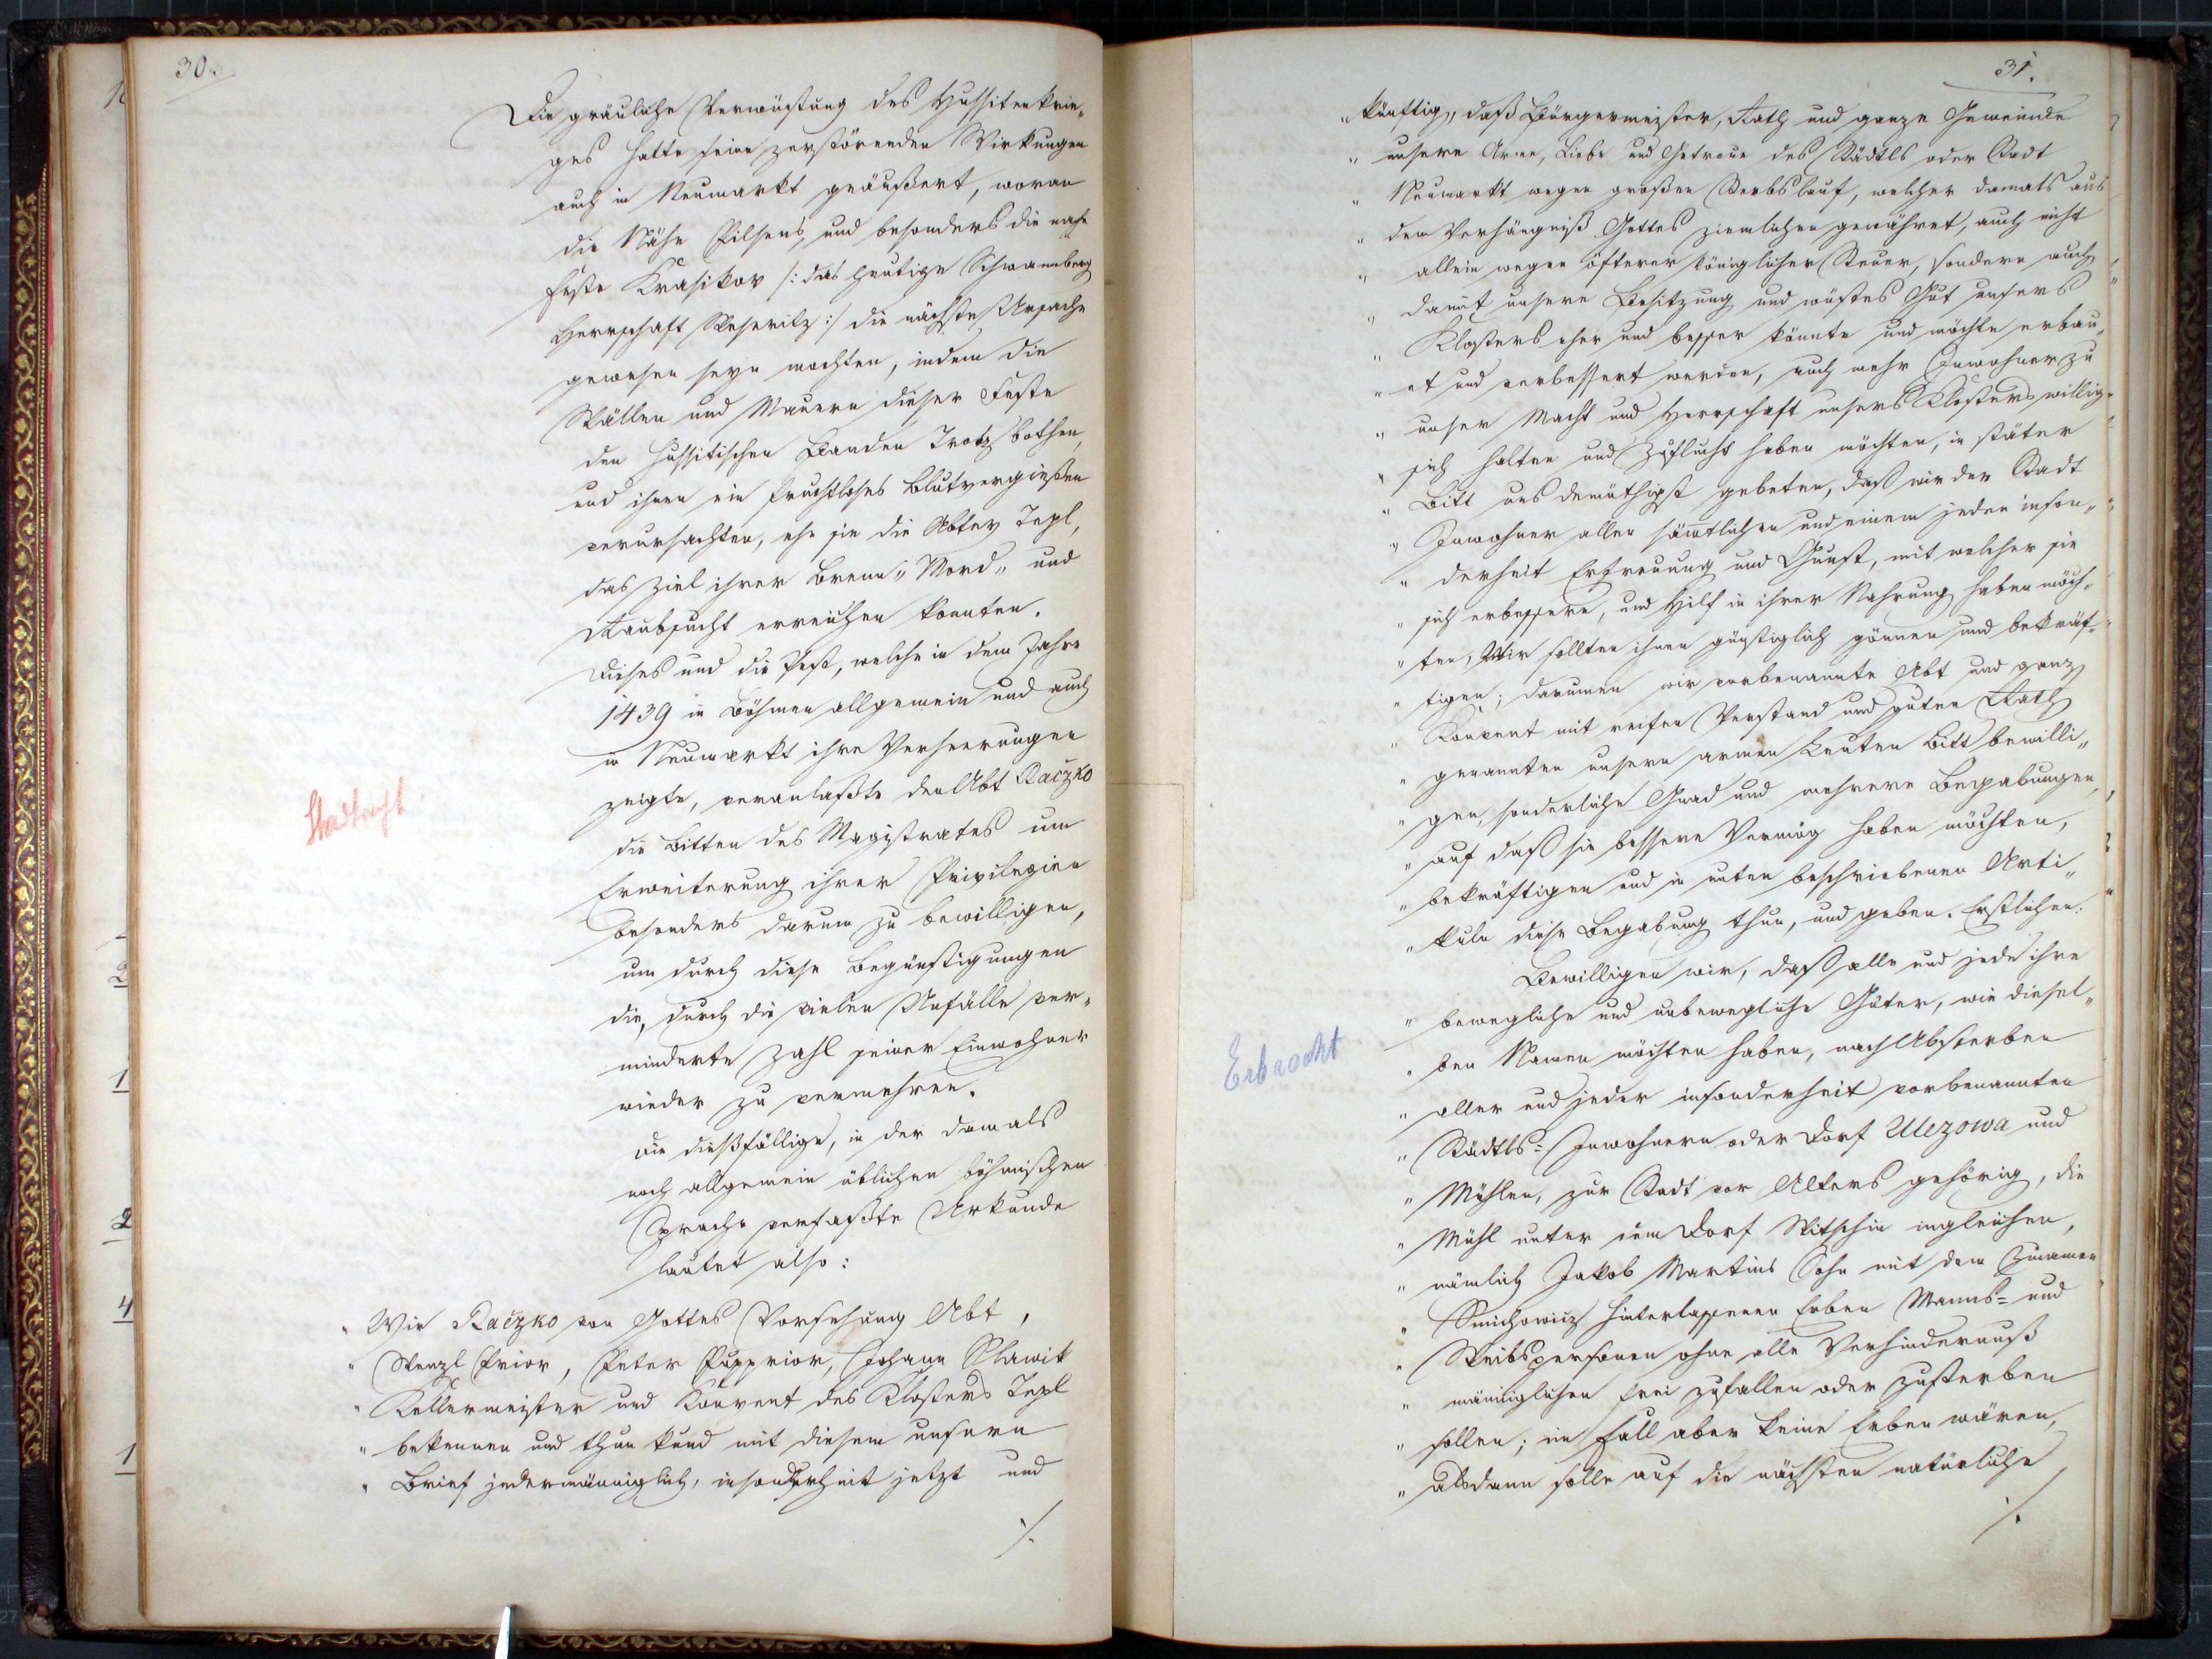 30.
Die gräuliche Verwüstung des Hussitenkrie„
ges hatte seine zerstörenden Wirkungen
auch in Neumarkt geäußert, woran
die Nähe Pilsens, und besonders die nahe
Feste Krasikov /: das heutige Schwamberg
Herrschaft Weseritz :/ die nächste Ursache
gewesen seyn mochten, indem die
Wällen und Mauern dieser Feste
den hussitischen Banden Trotz bothen,
und ihnen ein fruchtloses Blutvergießen
verursachten, ehe sie die Abtey Tepl,
das Ziel ihrer Brenn„ Mord„ und
Raubsucht erreichen konnten.
Dieses und die Pest, welche in dem Jahre
1439 in Böhmen allgemein und auch
in Neumarkt ihre Verheerungen
zeigte, veranlaßte den Abt Raczko
Stadtrecht.
die Bitten des Magistrates um
Erweiterung ihrer Privilegien
besonders darum zu bewilligen,
um durch diese Begünstigungen
die, durch die vielen Unfälle ver„
minderte Zahl seiner Einwohner
wieder zu vermehren.
Die dießfällige, in der damals
noch allgemein üblichen böhmischen
Sprache verfaßte Urkunde
lautet also:
„ Wir Raczko von Gottes Vorsehung Abt,
„ Wenzl Prior, Peter Supprior, Johann Slawik
„ Kellermeister und Konvent des Klosters Tepl
„ bekennen und thun kund mit diesem unsern
„ Brief jedermänniglich, insonderheit jetzt und
./.
31.
„ künftig, daß Bürgermeister, Rath und ganze Gemeinde
„ unsere Arme, Liebe und Getreue des Städtls oder Stadt
„ Neumarkt wegen großen Sterbslauf, welcher damals aus
„ dem Verhängniß Gottes ziemlichen gewähret, auch nicht
„ allein wegen öfterer königlicher Steuer, sondern auch
„ damit unsere Besitzung und wüstes Gut unsers
„ Klosters eher und besser könnte und möchte erbau„
„ et und verbessert werden, auch mehr Inwohner zu
„ unser Macht und Herrschaft unsers Klosters willig
„ sich halten und Zuflucht haben möchten, in stäter
„ Bitt uns demüthigst gebeten, daß wir der Stadt
„ Inwohner allen sämtlichen und einem jeden inson„
„ derheit Erfreuung und Gunst, mit welcher sie
„ sich erbessern, und Hilf in ihrer Nahrung haben möch„
„ ten, Wir sollten ihnen günstiglich gönnen und bekräf„
„ tigen; darumen wir vorbenannte Abt und ganz
„ Konvent mit reifen Verstand und guten Rath
„ genannten unsern armen Leuten Bitt bewilli„
„ gen, sonderliche Gnad und mehrere Begabungen,
„ auf daß sie bessere Vermög haben möchten,
„ bekräftigen und in unten beschriebenen Arti„
„ kuln diese Begabung thun, und geben. Erstlichen:
Bewilligen wir, daß alle und jede ihre
„ bewegliche und unbewegliche Güter, wie diesel„
„ ben Namen möchten haben, nach Absterben
Erbrecht
„ aller und jeder insonderheit vorbenannten
„ Städtls=Inwohnern oder Dorf Ulezowa und
„ Mühlen, zur Stadt vor Alters gehörig, die
„ Mühl unter dem Dorf Witschin ingleichen,
„ nämlich Jakob Martins Sohn mit dem Zunamen
„ Smichowicz hinterlassenen Erben Manns= und
„ Weibspersonen ohne alle Verhindernuß
„ männiglichen frei zufallen oder zusterben
„ sollen; im Fall aber keine Erben wären,
„ alsdann solle auf die nächsten natürliche
./.